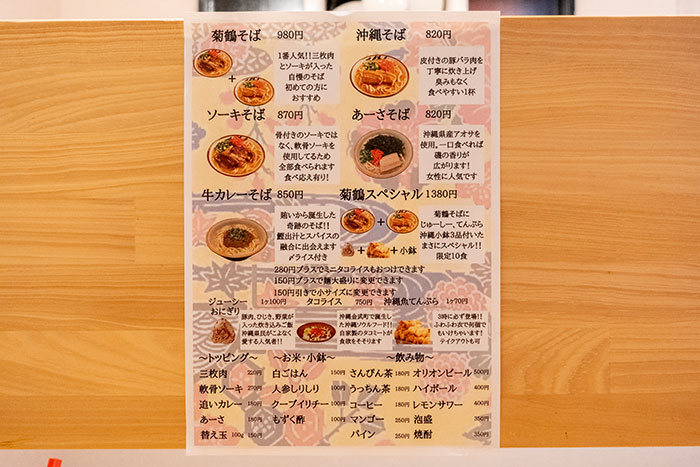 菊鶴そば 980円
1番人気!!三枚肉
とソーキが入った
自慢のそば
初めての方に
おすすめ
沖縄そば 820円
皮付きの豚バラ肉を
丁寧に炊き上げ
臭みもなく
食べやすい1杯
ソーキそば 870円
骨付きのソーキでは
なく、軟骨ソーキを
使用してるため
全部食べられます
食べ応え有り!
あーさそば 820円
沖縄県産アオサを
使用。一口食べれば
磯の香りが
広がります!
女性に人気です
牛カレーそば 850円
賄いから誕生した
奇跡のそば!!
鰹出汁とスパイスの
融合に出会えます
〆ライス付き
菊鶴スペシャル 1380円
+小鉢
菊鶴そばに
じゅーしー、てんぷら
沖縄小鉢3品付いた
まさにスペシャル!!
限定10食
280円プラスでミニタコライスもおつけできます
150円プラスで麺大盛りに変更できます
150円引きで小サイズに変更できます
ジューシー
おにぎり 1ヶ100円
豚肉、ひじき、野菜が
入った炊き込みご飯
沖縄県民がこよなく
愛する人気者!!
タコライス 750円
沖縄金武町で誕生し
た沖縄ソウルフード!!
自家製のタコミートが
食欲をそそります
沖縄魚てんぷら 1ヶ70円
3時に必ず登場!!
ふわふわ衣で何個で
もいけちゃいます!
テイクアウト可
〜トッピング〜
三枚肉 220円
軟骨ソーキ 270円
追いカレー 180円
あーさ 180円
替え玉 100g 150円
〜お米・小鉢〜
白ごはん 150円
人参しりしり 100円
クーブイリチー 100円
もずく酢 100円
〜飲み物〜
さんぴん茶 180円
うっちん茶 180円
コーヒー 180円
マンゴー 250円
パイン 250円
オリオンビール 500円
ハイボール 400円
レモンサワー 400円
泡盛 350円
焼酎 350円